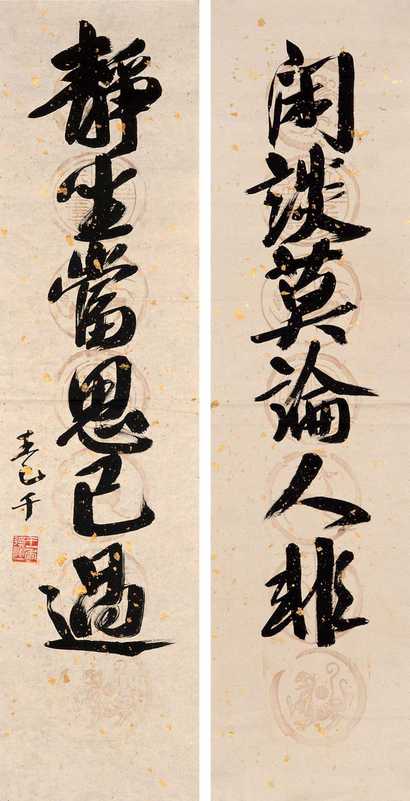 閑談莫論人非
靜坐當思己過
王己千